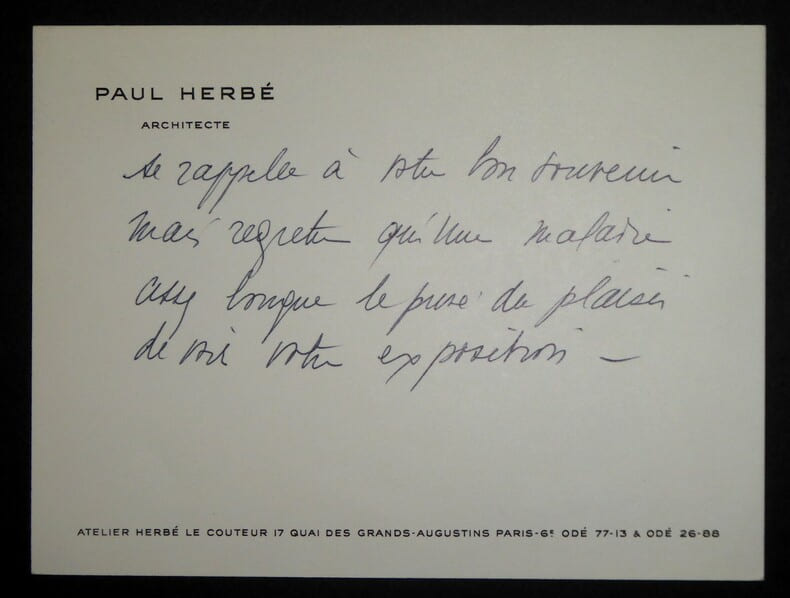 PAUL HERBÉ
ARCHITECTE
se rappelle à votre bon souvenir
mais regrette qu'une maladie
assez longue le prive du plaisir
de voir votre exposition —
ATELIER HERBÉ LE COUTEUR 17 QUAI DES GRANDS-AUGUSTINS PARIS-6ᴱ ODÉ 77-13 & ODÉ 26-88